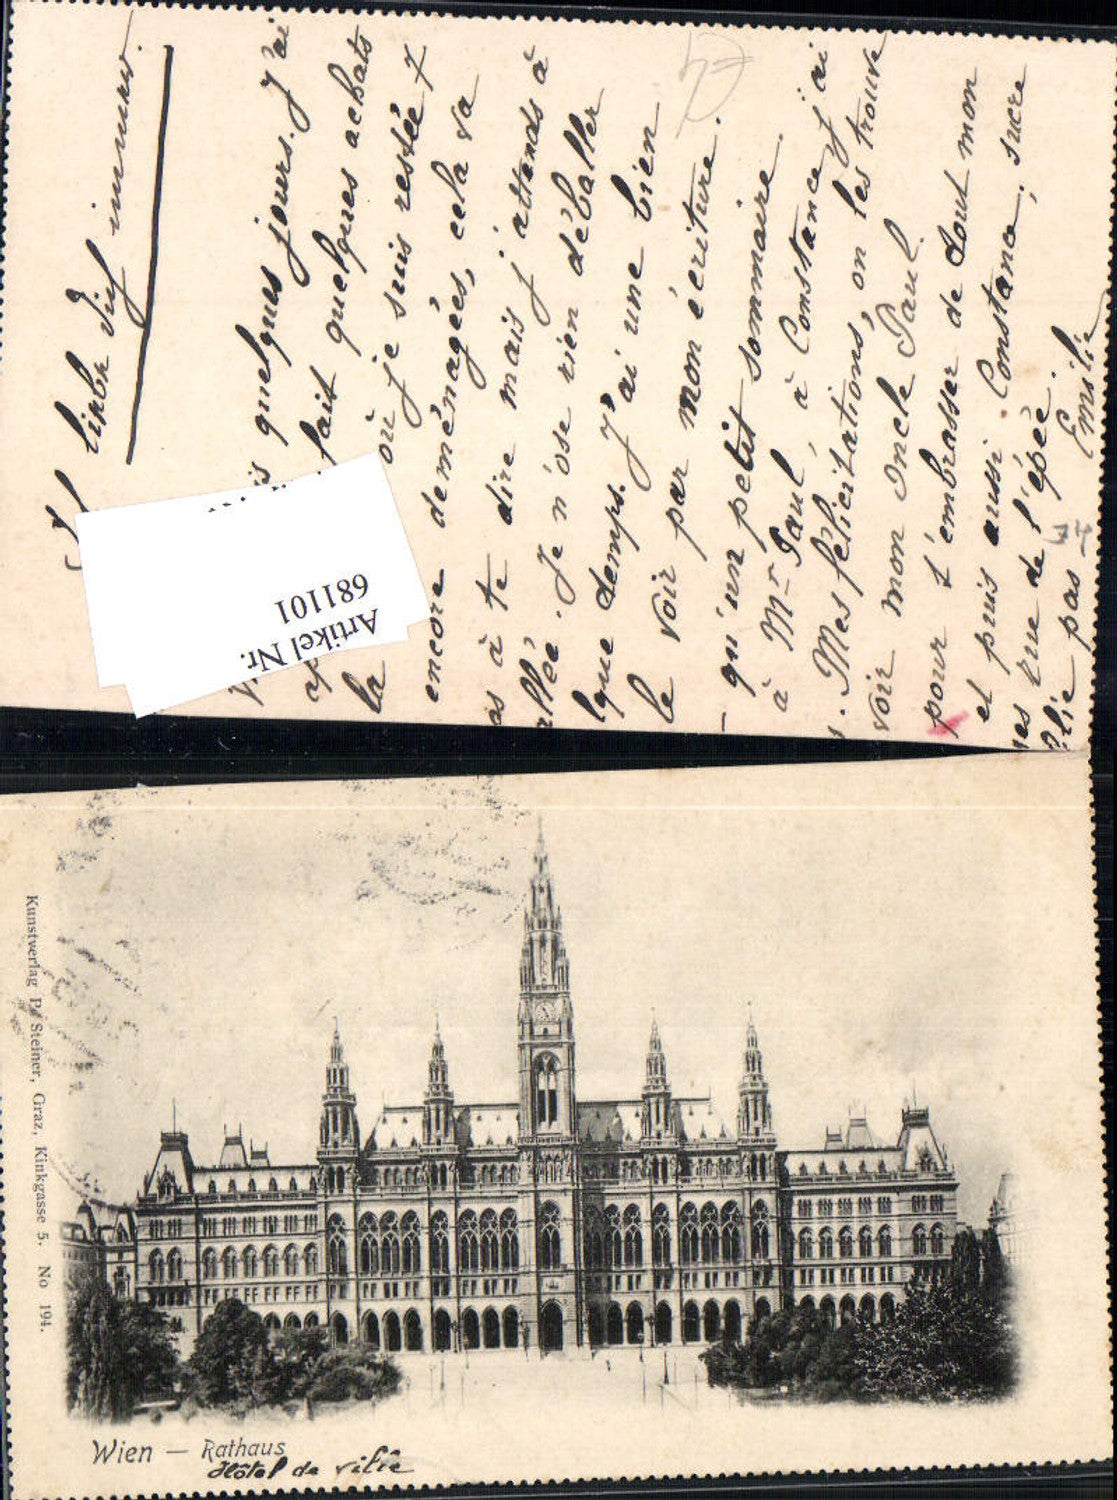 Ich liebe dich immer.
is quelques jours. J'ai
fait quelques achats
la où je suis restée 7
encore deménagées, cela va
as à te dire mais j'attends à
allée. Je n'ose rien déballer
lque temps. J'ai une bien
le voir par mon écriture.
qu'un petit sommaire.
à Mr Paul, à Constance j'ai
. Mes félicitations, on les trouve
voir mon Oncle Paul.
pour t'embrasser de tout mon
et puis aussi Constance, sucre
es que de l'épée.
lie pas Emilie
Artikel Nr.
681101
Kunstverlag P. Steiner, Graz, Kinkgasse 5. No 194.
Wien — Rathaus
Hôtel de ville